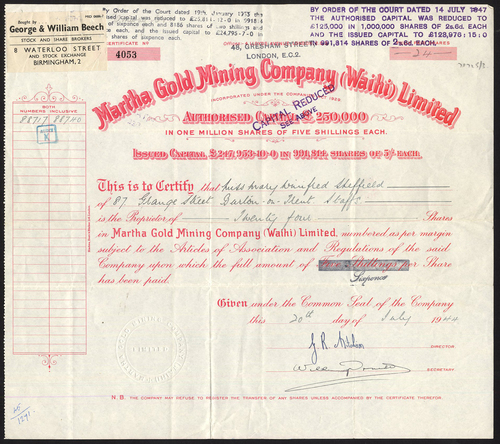 Bought by
George & William Beech
STOCK AND SHARE BROKERS
8 WATERLOO STREET
AND STOCK EXCHANGE
BIRMINGHAM, 2
By Order of the Court dated 19th January 1973 the
capital was reduced to £25,811.
of sixpence each and 8186 shares of
each, and the issued capital to £24,795-7-0 in
shares of sixpence each.
BY ORDER OF THE COURT DATED 14 JULY 1947
THE AUTHORISED CAPITAL WAS REDUCED TO
£125,000 IN 1,000,000 SHARES OF 2s.6d. EACH
AND THE ISSUED CAPITAL TO £123,976:15:0
IN 991,814 SHARES OF 2s.6d. EACH.
CERTIFICATE NO
4053
48, GRESHAM STREET,
LONDON, E.C.2.
SHARES
-24-
Martha Gold Mining Company (Waihi) Limited
INCORPORATED UNDER THE COMPANIES
CAPITAL REDUCED
SEE ABOVE
AUTHORISED CAPITAL £250,000
IN ONE MILLION SHARES OF FIVE SHILLINGS EACH.
ISSUED CAPITAL, £247,953-10-0 IN 991,814 SHARES OF 5/- EACH.
BOTH
NUMBERS INCLUSIVE
88717 88740
K
This is to Certify that Miss Mary Winifred Sheffield
of 87 Grange Street Burton-on-Trent Staffs
is the Proprietor of Twenty four Shares
in Martha Gold Mining Company (Waihi) Limited, numbered as per margin
subject to the Articles of Association and Regulations of the said
Company upon which the full amount of Five Shillings per Share
Sixpence
has been paid.
Given under the Common Seal of the Company
this 20th day of July 1944
DIRECTOR
SECRETARY
N.B. THE COMPANY MAY REFUSE TO REGISTER THE TRANSFER OF ANY SHARES UNLESS ACCOMPANIED BY THE CERTIFICATE THEREFOR.